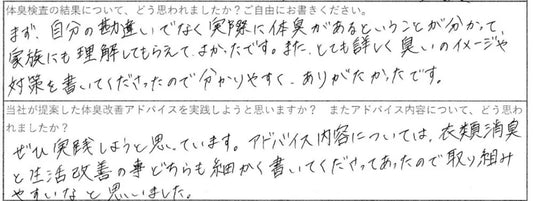 体臭検査の結果について、どう思われましたか？ご自由にお書きください。
まず、自分の勘違いでなく実際に体臭があるということが分かって、
家族にも理解してもらえてよかったです。また、とても詳しく臭いのイメージや
対策を書いてくださったので分かりやすく、ありがたかったです。
当社が提案した体臭改善アドバイスを実践しようと思いますか？　またアドバイス内容について、どう思わ
れましたか？
ぜひ実践しようと思っています。アドバイス内容については、衣類消臭
と生活改善の事どちらも細かく書いてくださってあったので取り組み
やすいなと思いました。